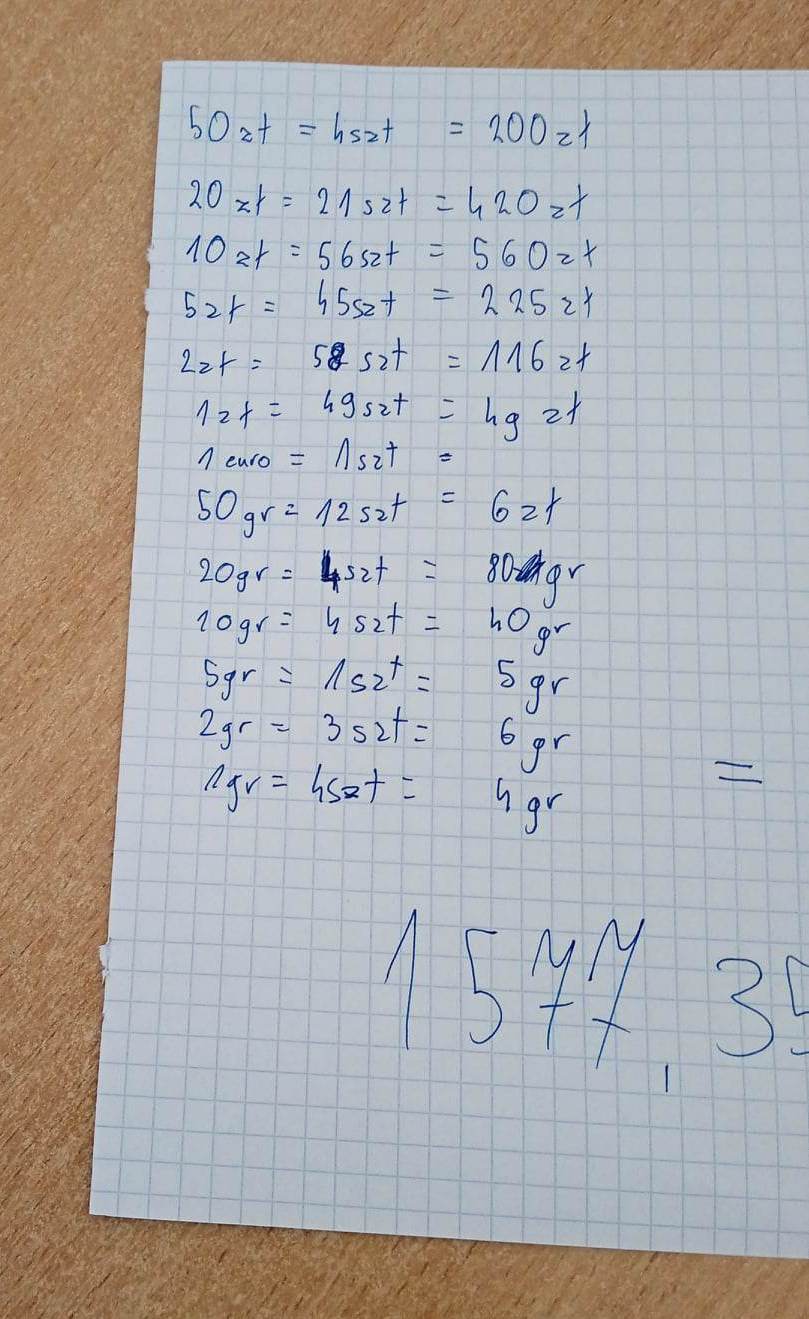 50 zł = 4 szt = 200 zł
20 zł = 21 szt = 420 zł
10 zł = 56 szt = 560 zł
5 zł = 45 szt = 225 zł
2 zł = 58 szt = 116 zł
1 zł = 49 szt = 49 zł
1 euro = 1 szt =
50 gr = 12 szt = 6 zł
20 gr = 4 szt = 80 gr
10 gr = 4 szt = 40 gr
5 gr = 1 szt = 5 gr
2 gr = 3 szt = 6 gr
1 gr = 4 szt = 4 gr
=
1577,35